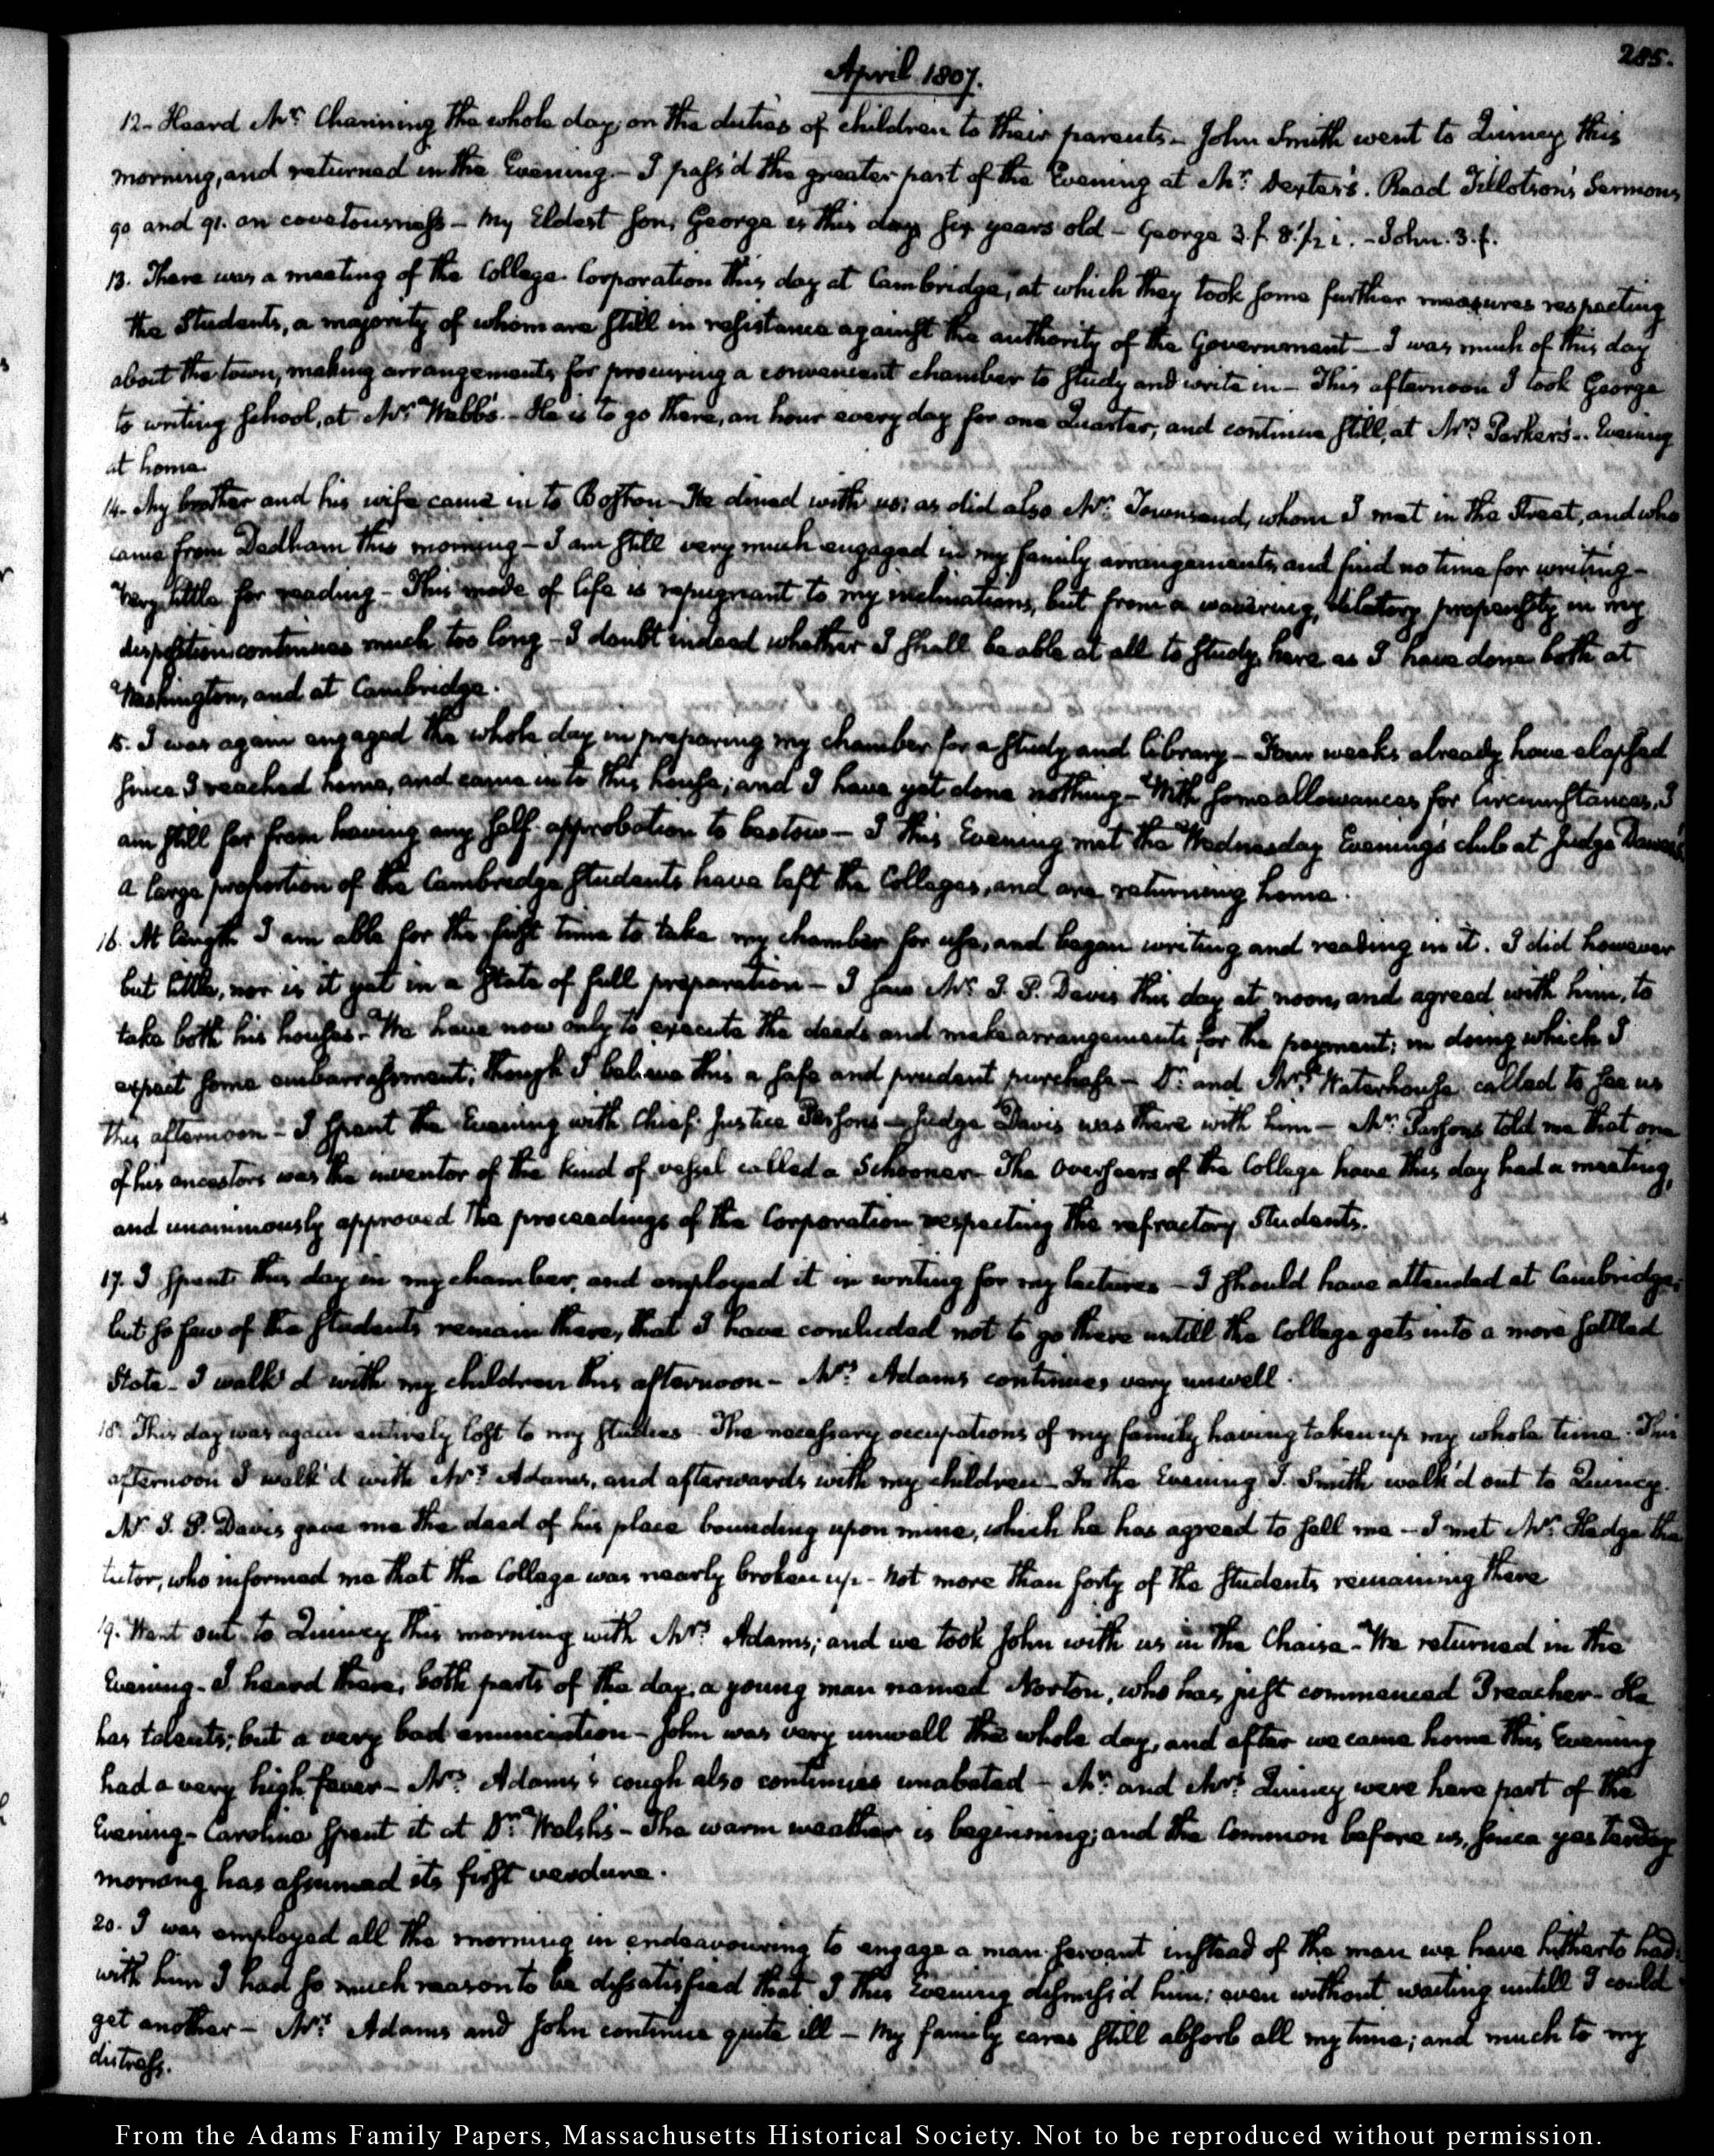 285.
April 1807.
12- Heard Mr. Channing the whole day, on the duties of children to their parents- John Smith went to Quincy this
morning, and returned in the Evening.- I pass'd the greater part of the Evening at Mr. Dexter's. Read Tillotson's Sermons
90 and 91. on covetousness- My Eldest son, George is this day six years old- George 3.f. 8.1/2 i.- John. 3.f.
13. There was a meeting of the College Corporation this day at Cambridge, at which they took some further measures respecting
the Students, a majority of whom are still in resistance against the authority of the Government- I was much of this day
about the town, making arrangements for procuring a convenient chamber to study and write in- This afternoon I took George
to writing school, at Mr. Webb's.- He is to go there, an hour every day for one Quarter, and continue still, at Mrs. Parker's.. Evening
at home.
14- My brother and his wife came in to Boston- He dined with us; as did also Mr. Townsend, whom I met in the Street, and who
came from Dedham this morning- I am still very much engaged in my family arrangements, and find no time for writing-
Very little for reading- This mode of life is repugnant to my inclinations, but from a wavering, dilatory propensity in my
disposition continues much too long- I doubt indeed whether I shall be able at all to study, here as I have done both at
Washington, and at Cambridge.
15. I was again engaged the whole day in preparing my chamber for a study and library- Four weeks already have elapsed
since I reached home, and came in to this house; and I have yet done nothing- With some allowances for Circumstances, I
am still far from having any self-approbation to bestow- I this Evening met the Wednesday Evening's club at Judge Dawes's
A large proportion of the Cambridge students have left the Colleges, and are returning home.
16. At length I am able for the first time to take my chamber for use, and began writing and reading in it. I did however
but little, nor is it yet in a state of full preparation- I saw Mr. I. P. Davis this day at noon, and agreed with him, to
take both his houses.- We have now only to execute the deeds and make arrangements for the payment; in doing which I
expect some embarrassment; though I believe this a safe and prudent purchase- Dr. and Mrs. Waterhouse called to see us
this afternoon- I spent the Evening with Chief Justice Parsons- Judge Davis was there with him- Mr. Parsons told me that one
of his ancestors was the inventor of the kind of vessel called a Schooner- The Overseers of the College have this day had a meeting,
and unanimously approved the proceedings of the Corporation respecting the refractory Students.
17. I spent this day in my chamber, and employed it in writing for my lectures- I should have attended at Cambridge;
but so few of the students remain there, that I have concluded not to go there untill the College gets into a more settled
State- I walk'd with my children this afternoon- Mrs. Adams continues very unwell.
18. This day was again entirely lost to my studies- The necessary occupations of my family having taken up my whole time- This
afternoon I walk'd with Mrs. Adams, and afterwards with my children- In the Evening J. Smith walk'd out to Quincy.
Mr. I. P. Davis gave me the deed of his place bounding upon mine, which he has agreed to sell me- I met Mr. Hedge the
tutor, who informed me that the College was nearly broken up- Not more than forty of the students remaining there
19. Went out to Quincy this morning with Mrs. Adams; and we took John with us in the Chaise- We returned in the
Evening- I heard there, both parts of the day, a young man named Norton, who has just commenced Preacher- He
has talents; but a very bad enunciation- John was very unwell the whole day, and after we came home this Evening
had a very high fever- Mrs. Adams's cough also continues unabated- Mr. and Mrs. Quincy were here part of the
Evening- Caroline spent it at Dr. Welsh's- The warm weather is beginning; and the Common before us, since yesterday
morning has assumed its first verdure.
20. I was employed all the morning in endeavouring to engage a man servant instead of the man we have hitherto had:
with him I had so much reason to be dissatisfied that I this Evening dismiss'd him; even without waiting untill I could
get another- Mrs. Adams and John continue quite ill- My family cares still absorb all my time; and much to my
distress.
From the Adams Family Papers, Massachusetts Historical Society. Not to be reproduced without permission.